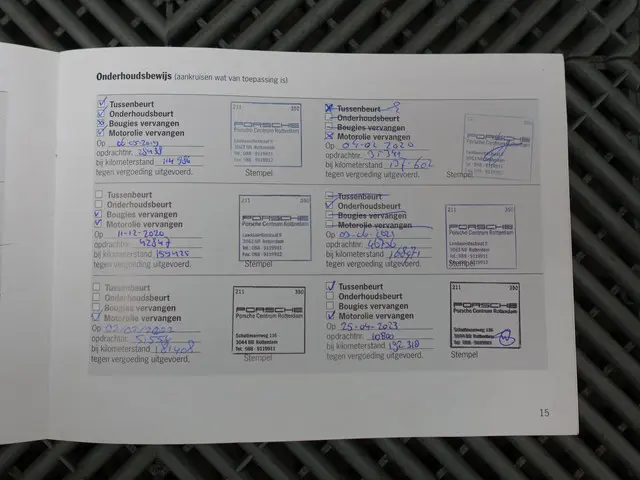 Onderhoudsbewijs (aankruisen wat van toepassing is)
Tussenbeurt
Onderhoudsbeurt
Bougies vervangen
Motorolie vervangen
Op
opdrachtnr. 28438
bij kilometerstand 114 986
tegen vergoeding uitgevoerd.
211 350
PORSCHE
Porsche Centrum Rotterdam
Stempel
Tussenbeurt
Onderhoudsbeurt
Bougies vervangen
Motorolie vervangen
Op 04-02 2020
opdrachtnr.
bij kilometerstand
tegen vergoeding uitgevoerd.
PORSCHE
Porsche Centrum Rotterdam
Stempel
Tussenbeurt
Onderhoudsbeurt
Bougies vervangen
Motorolie vervangen
Op 11-12-2020
opdrachtnr. 42847
bij kilometerstand
tegen vergoeding uitgevoerd.
211 350
PORSCHE
Porsche Centrum Rotterdam
Stempel
Tussenbeurt
Onderhoudsbeurt
Bougies vervangen
Motorolie vervangen
Op
opdrachtnr. 46756
bij kilometerstand
tegen vergoeding uitgevoerd.
211 350
PORSCHE
Porsche Centrum Rotterdam
Stempel
Tussenbeurt
Onderhoudsbeurt
Bougies vervangen
Motorolie vervangen
Op
opdrachtnr.
bij kilometerstand 181408
tegen vergoeding uitgevoerd.
211 350
PORSCHE
Porsche Centrum Rotterdam
Stempel
Tussenbeurt
Onderhoudsbeurt
Bougies vervangen
Motorolie vervangen
Op 25-04-2023
opdrachtnr.
bij kilometerstand 192 318
tegen vergoeding uitgevoerd.
211 350
PORSCHE
Porsche Centrum Rotterdam
Stempel
15